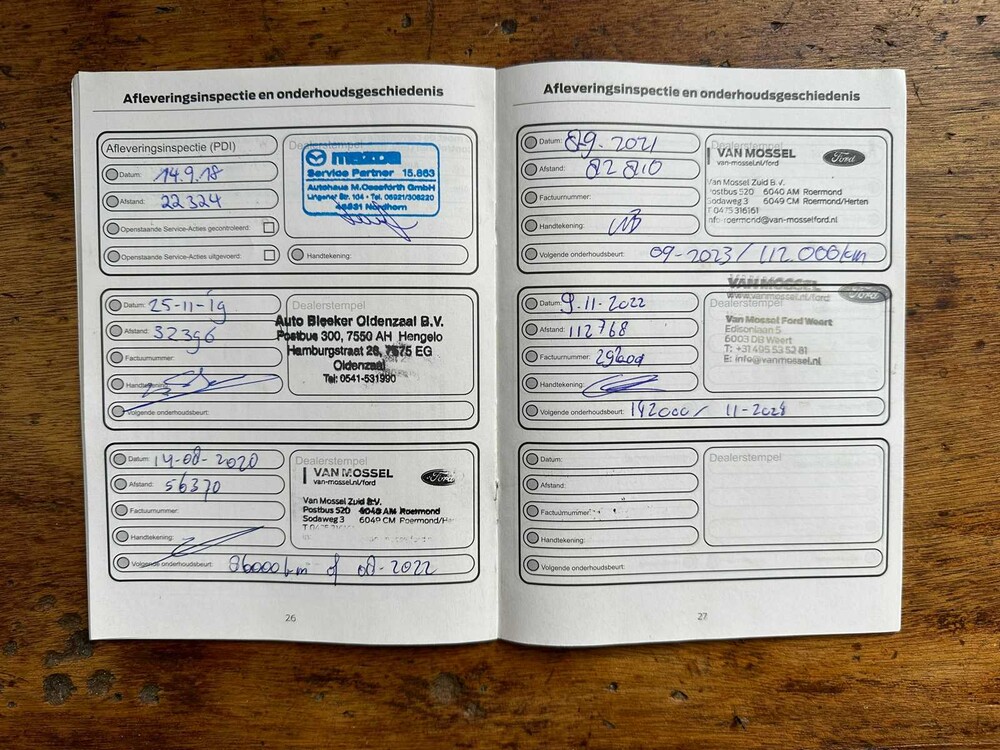 Afleveringsinspectie en onderhoudsgeschiedenis
Afleveringsinspectie (PDI)
Datum: 14.9.18
Afstand: 22324
Openstaande Service-Acties gecontroleerd:
Openstaande Service-Acties uitgevoerd:
Dealerstempel
mazda
Service Partner 15.663
Autohaus M.Oeseforth GmbH
Lingener Str. 104 • Tel. 05921/306220
48531 Nordhorn
Handtekening:
Datum: 25-11-19
Afstand: 32396
Factuurnummer:
Handtekening:
Volgende onderhoudsbeurt:
Dealerstempel
Auto Bleeker Oldenzaal B.V.
Postbus 300, 7550 AH Hengelo
Hamburgstraat 26, 7575 EG
Oldenzaal
Tel: 0541-531990
Datum: 14-08-2020
Afstand: 56370
Factuurnummer:
Handtekening:
Volgende onderhoudsbeurt: 86000km of 08-2022
Dealerstempel
VAN MOSSEL
van-mossel.nl/ford
Ford
Van Mossel Zuid B.V.
Postbus 520 6040 AM Roermond
Sodaweg 3 6049 CM Roermond/He
26
Afleveringsinspectie en onderhoudsgeschiedenis
Datum: 09-2021
Afstand: 82 810
Factuurnummer:
Handtekening:
Volgende onderhoudsbeurt: 09-2023 / 112.000km
Dealerstempel
VAN MOSSEL
van-mossel.nl/ford
Ford
Van Mossel Zuid B.V.
Postbus 520 6040 AM Roermond
Sodaweg 3 6049 CM Roermond/Herten
T 0475 316161
info-roermond@van-mosselford.nl
Datum: 9.11-2022
Afstand: 112768
Factuurnummer:
Handtekening:
Volgende onderhoudsbeurt: 142000 / 11-2024
Dealerstempel
VAN MOSSEL
www.vanmossel.nl/ford
Ford
Van Mossel Ford Weert
Edisonlaan 5
6003 DB Weert
T: +31 495 53 52 81
E: info@vanmossel.nl
Datum:
Afstand:
Factuurnummer:
Handtekening:
Volgende onderhoudsbeurt:
Dealerstempel
27